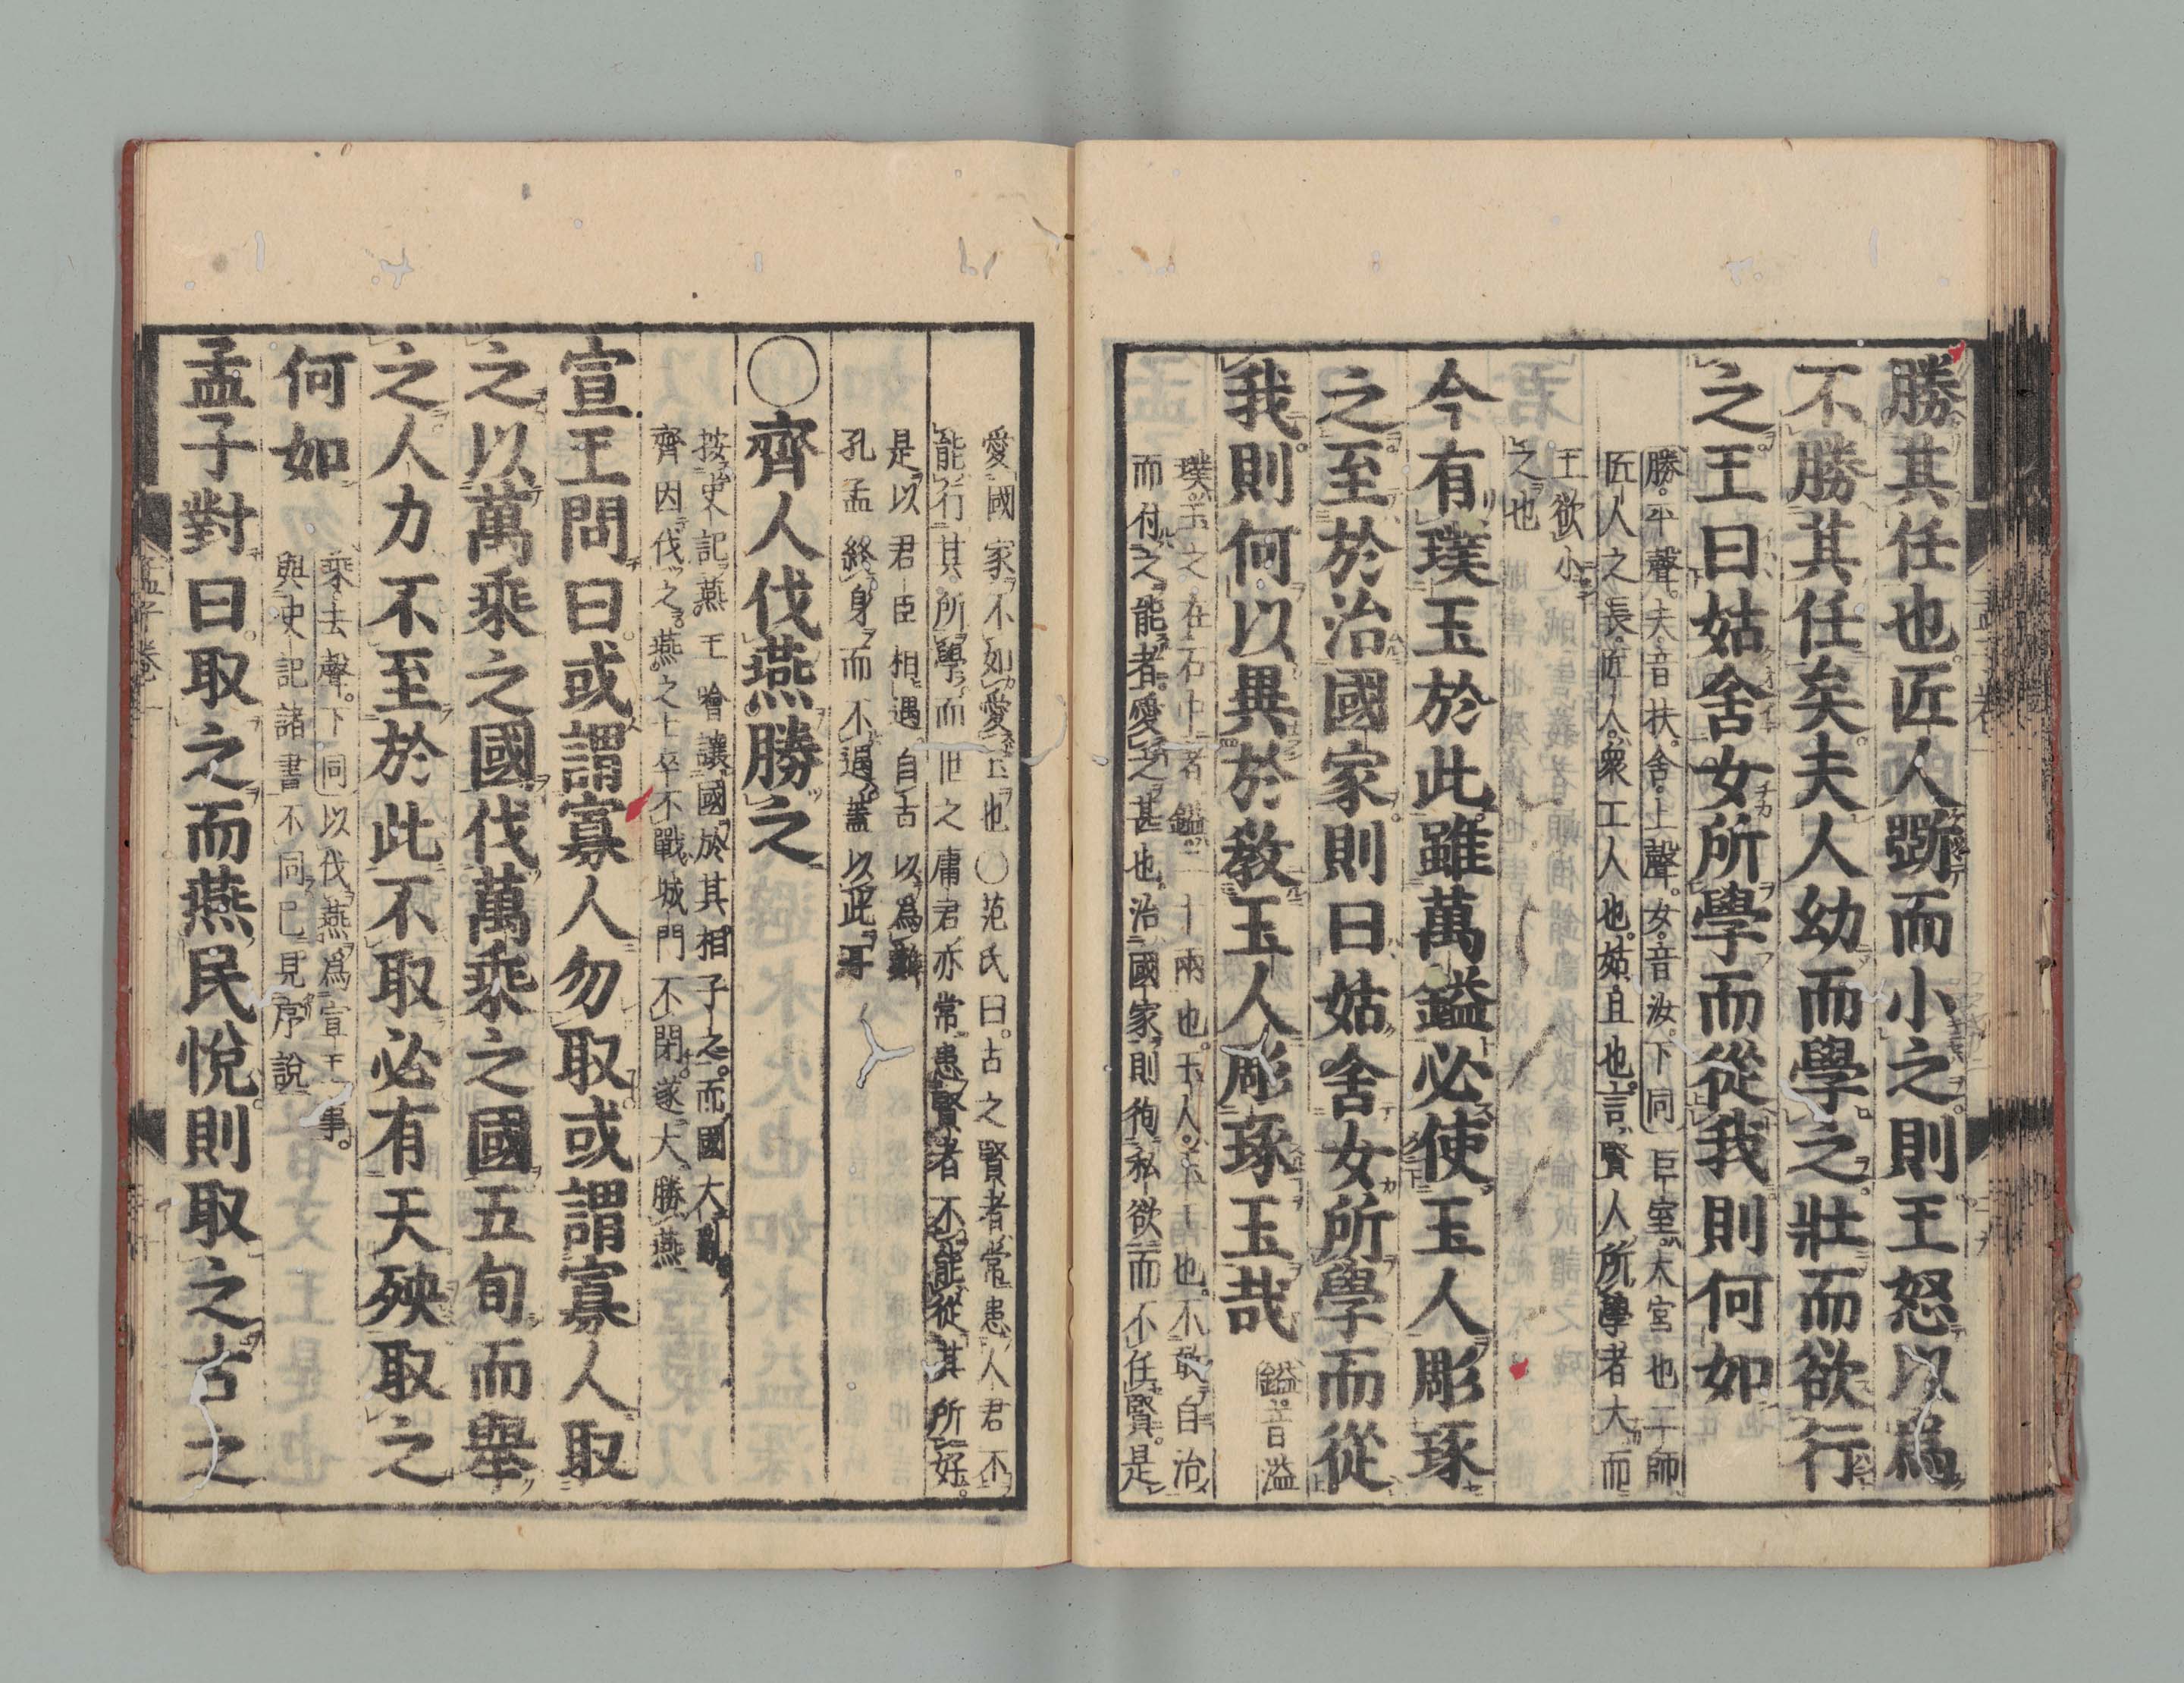 勝其任也匠人斲而小之則王怒以爲
不勝其任矣夫人幼而學之壯而欲行
之王曰姑舍女所學而從我則何如
勝平聲。夫音扶。舍上聲。女音汝。下同 巨室大宮也工師
匠人之長。匠人。衆工人也。姑且也。言賢人所學者大而
王欲小
之也
今有璞玉於此雖萬鎰必使玉人彫琢
之至於治國家則曰姑舍女所學而從
我則何以異於教玉人彫琢玉哉
鎰音溢
璞玉之在石中者鎰二十兩也。玉人。玉工也。不敢自治
而付之能者。愛之甚也。治國家則徇私欲而不任賢。是
愛國家不如愛玉也〇范氏曰。古之賢者常患人君不
能行其所學而世之庸君亦常患賢者不能從其所好。
是以君臣相遇自古以爲難
孔孟終身而不遇。蓋以此耳
〇齊人伐燕勝之
按史記燕王噲讓國於其相子之。而國大亂
齊因伐之。燕之士卒不戰城門不閉。遂大勝燕
宣王問曰或謂寡人勿取或謂寡人取
之以萬乘之國伐萬乘之國五旬而舉
之人力不至於此不取必有天殃取之
何如
乘去聲。下同 以伐燕爲宣王事。
與史記諸書不同已見序說
孟子對曰取之而燕民悅則取之古之
孟子卷一